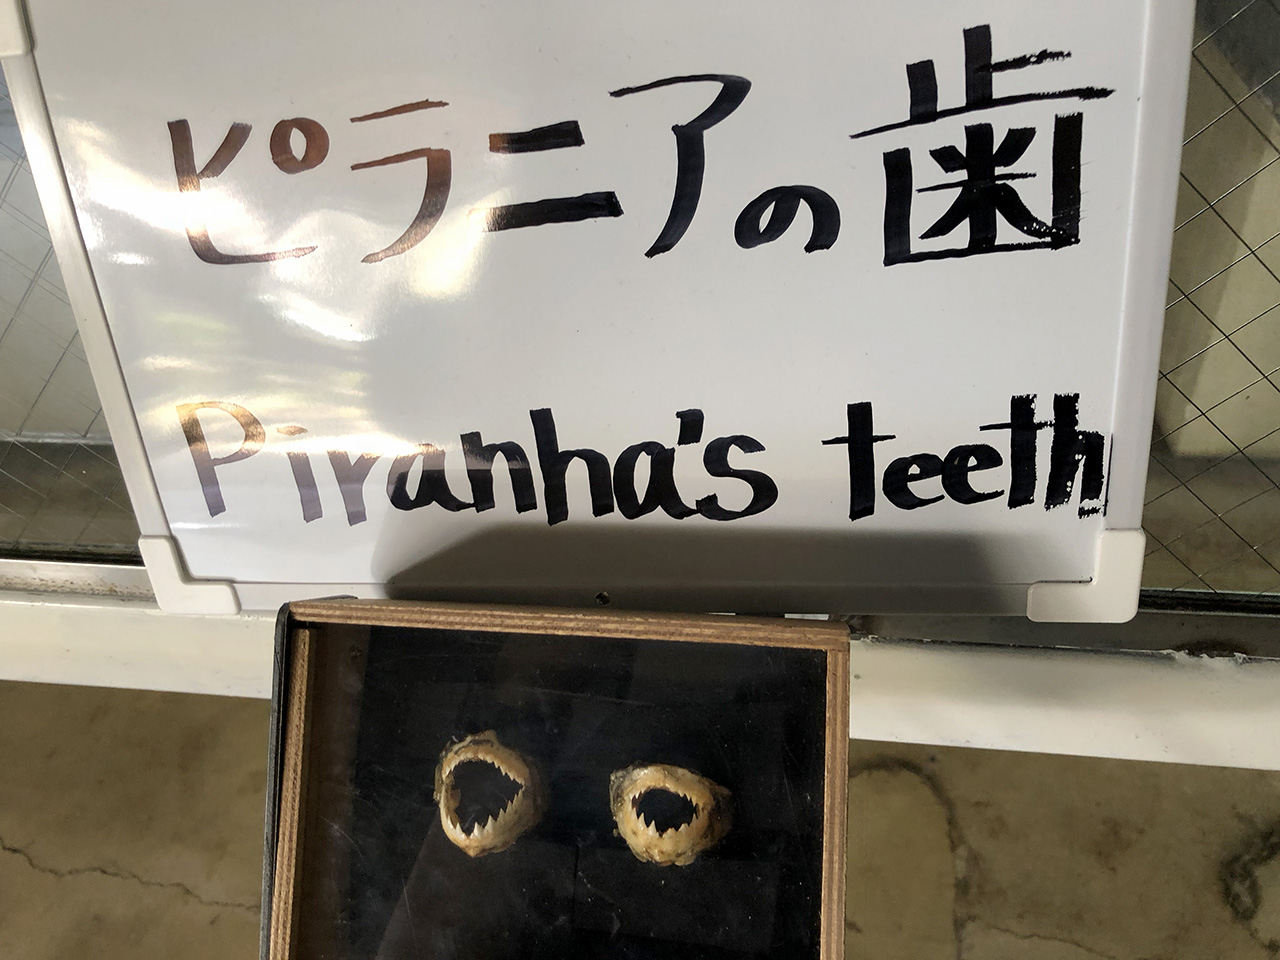 ピラニアの歯
Piranha's teeth